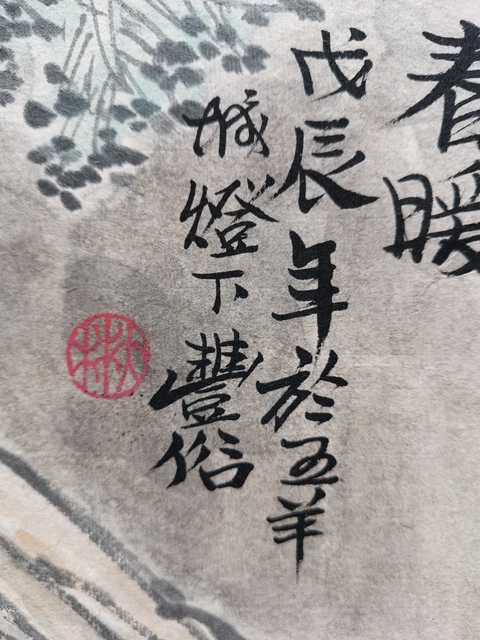 春暖
戊辰年於五羊
城燈下豐俗